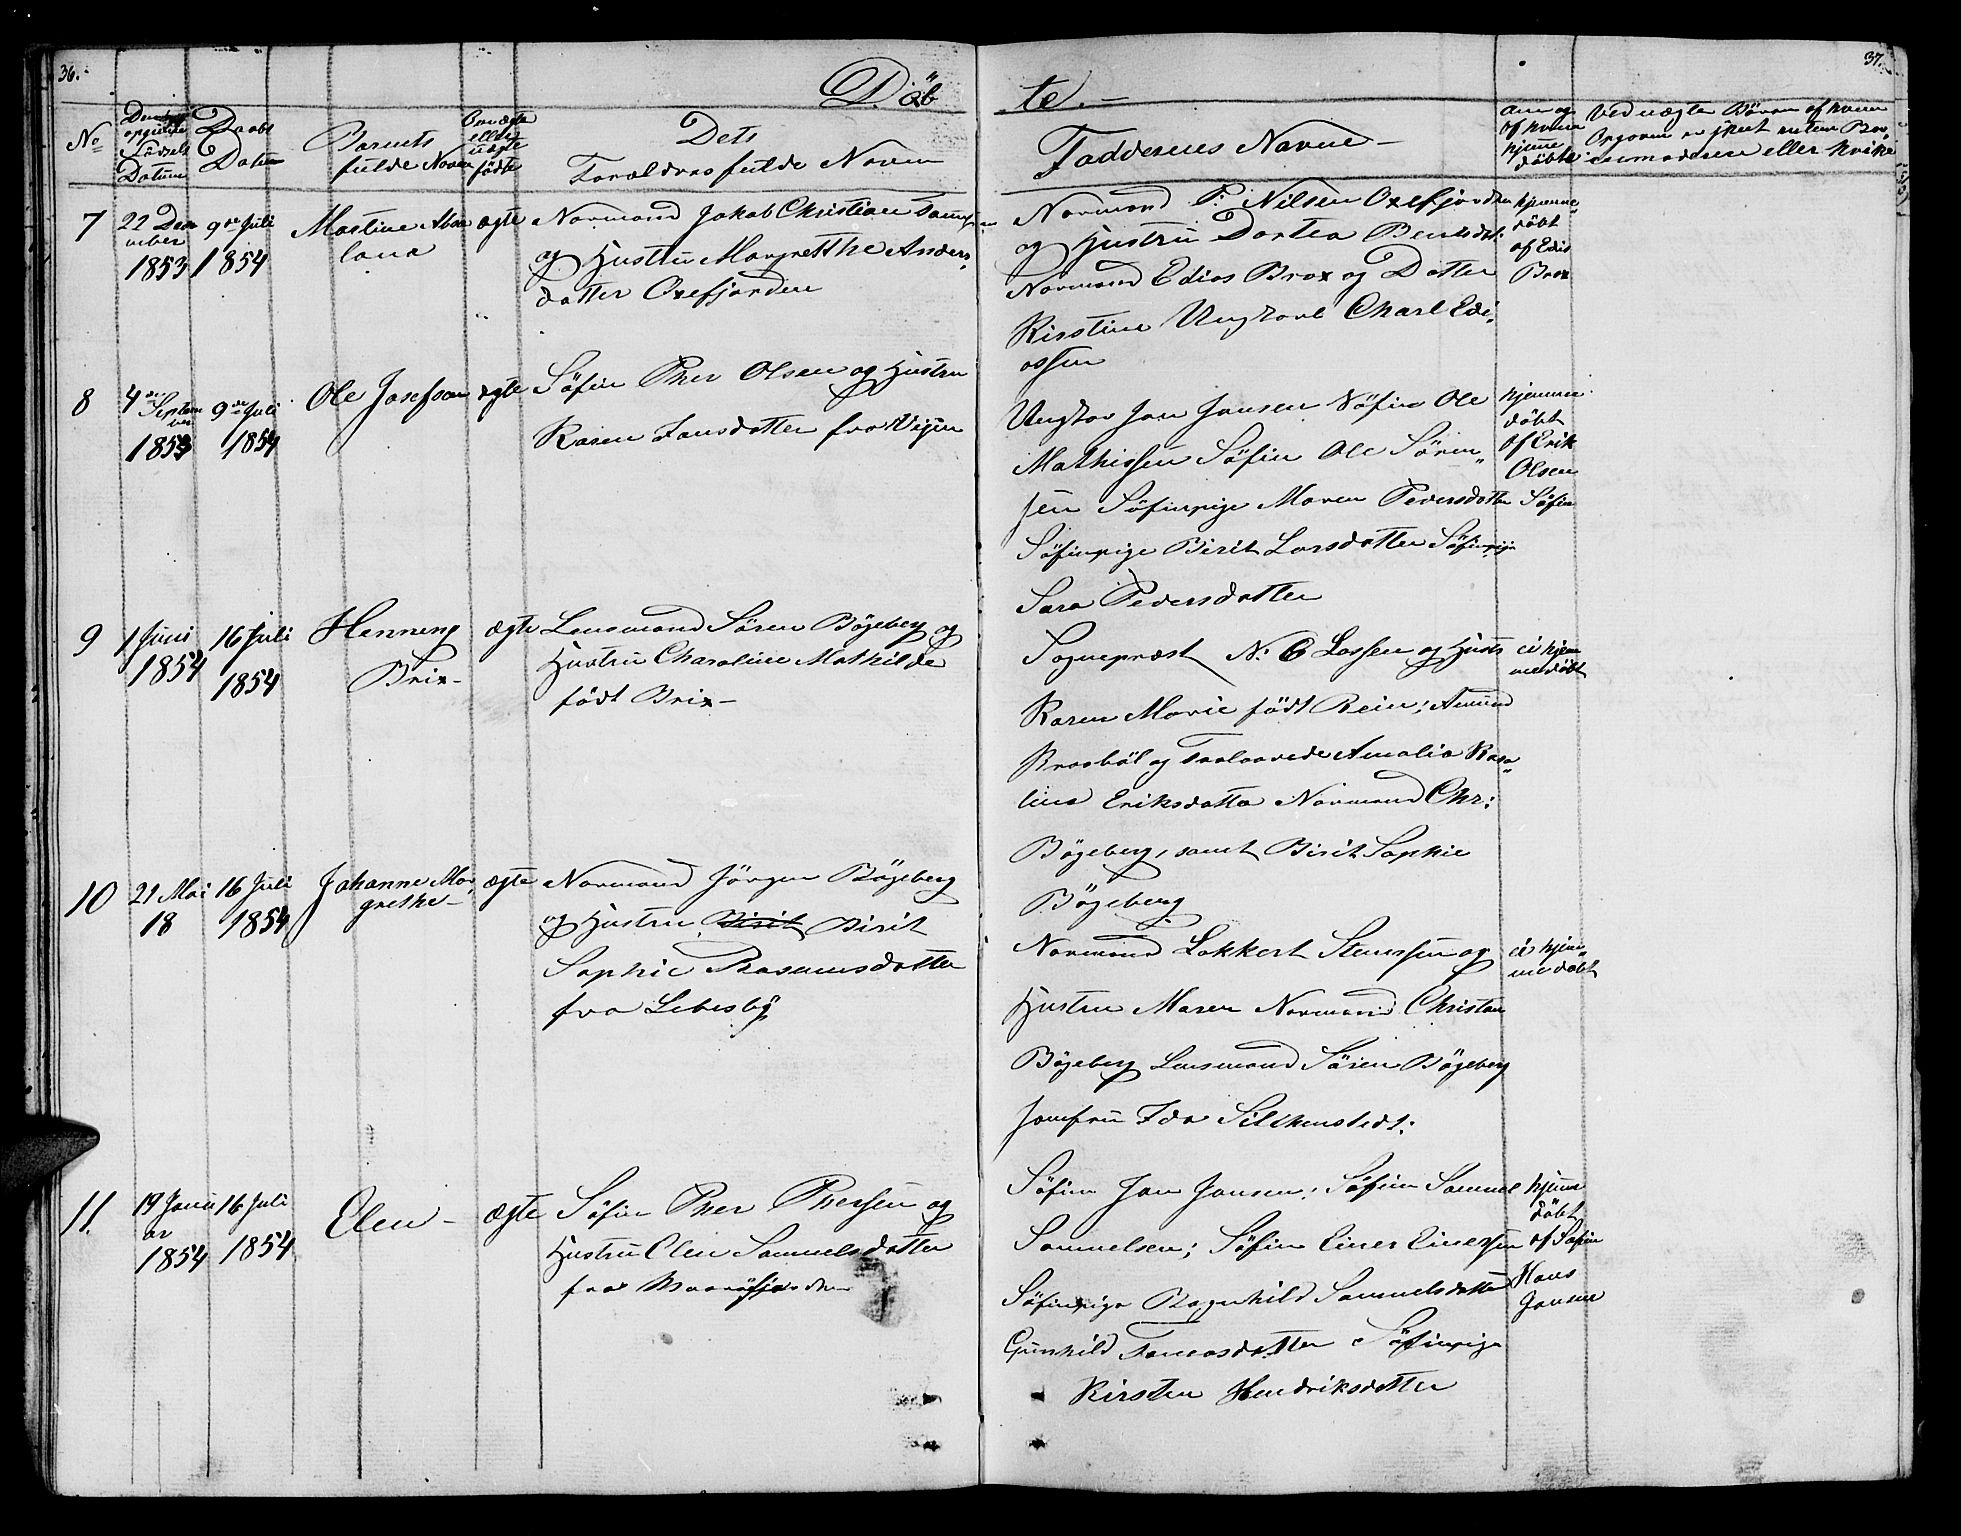 36.
37.
Döb
te.-
No
opgivne
Födsels
Datum
Daabs
Datum
Barnets
fulde Navn
ægte
eller
uægte
födte
Dets
Forældres fulde Navne
Faddernes Navne -
Om og
af hvem
hjemme
döbt
Ved uægte Börn af hvem
eller hvike
7
22 Decem
ber
1853
9de Juli
1854
Martine Abe
lona
ægte
Normand Jakob Christian
og Hustru Margrethe Anders
datter Oxefjorden
Normand P. Nilsen Oxefjorden
og Hustru Dortea
Normand Edias Brox og Datter
Kirstine Ungkarl Charl Edi
assen
hjemme
döbt
af Edias
Brox
8
4de
Septem
ber
1853
9de Juli
1854
Ole Josefsen
ægte
Söfin Pher Olsen og Hustru
Karen Jansdatter fra Vejen
Ungkar Jon Jansen Söfin Ole
Mathissen Söfin Ole Sören
sen Söfinpige Maren Pedersdatter
Söfinpige Birit Larsdatter Söfinpige
Sara Pedersdatter
hjemme
döbt
af Erik
Olsen
Söfin
9
1 Juni
1854
16 Juli
1854
Henning
Brix-
ægte
Lensmand Sören Bögeberg og
Hustru Charoline Mathilde
födt Brix-
Sogneprest N: C Lassen og Hustr
Karen Marie födt Reier; Amund
Braaböl og Amalia Rasa
lina Eriksdatter Normand Chr:
Bögeberg, samt Birit Sophie
Bögeberg
ei hjem
medöbt
10
21 Mai
18
16 Juli
1854
Johanne Mar
grethe-
ægte
Normand Jörgen Bögeberg
og Hustru Birit Birit
Sophie Rasmusdatter
fra Lebesby
Normand Lokkert Stenssen og
Hustru Maren Normand Christan
Bögeberg Lensmand Sören Bögeberg
Jomfru Ida Silchenstedt:
ei hjem
me döbt
11.
19 Janu
ar
1854
16 Juli
1854
Elen -
ægte
Söfin Pher Phersen og
Hustru Elen Samuelsdatter
fra
Söfin Jon Jansen; Söfin Samuel
Samuelsen; Söfin Einer Einersen
Söfinpige Ragnhild Samuelsdatter
Gunhild Tomasdatter Söfinpige
Kirsten Hendriksdatter
hjem
döbt
af Söfin
Hans
Jansen